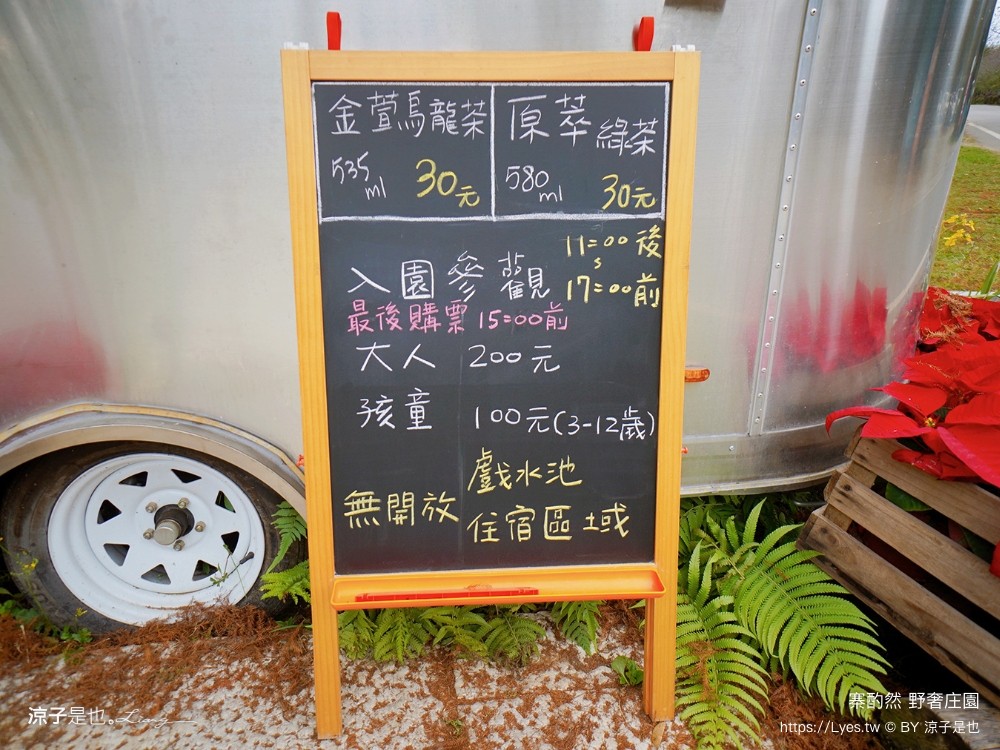 金萱烏龍茶
535ml 30元
原萃綠茶
580ml 30元
11:00後
s
17:00前
入園參觀
最後購票 15:00前
大人 200元
孩童 100元(3-12歲)
無開放 戲水池
住宿區域
涼子是也。Liang
寨酌然 野奢庄園
https://Lyes.tw © BY 涼子是也